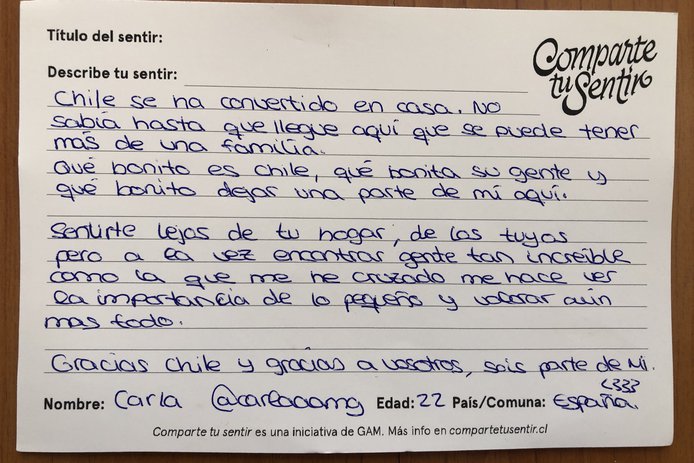 Título del sentir:
Comparte
tu Sentir
Describe tu sentir:
Chile se ha convertido en casa. No
sabía hasta que llegue aquí que se puede tener
más de una familia.
Qué bonito es Chile, qué bonita su gente y
qué bonito dejar una parte de mí aquí.
Sentirte lejos de tu hogar, de los tuyos
pero a la vez encontrar gente tan increíble
como la que me he cruzado me hace ver
la importancia de lo pequeño y valorar aún
mas todo.
Gracias Chile y gracias a vosotros, sois parte de mi.
<333
Nombre: Carla @carlaoamg Edad: 22 País/Comuna: España.
Comparte tu sentir es una iniciativa de GAM. Más info en compartetusentir.cl